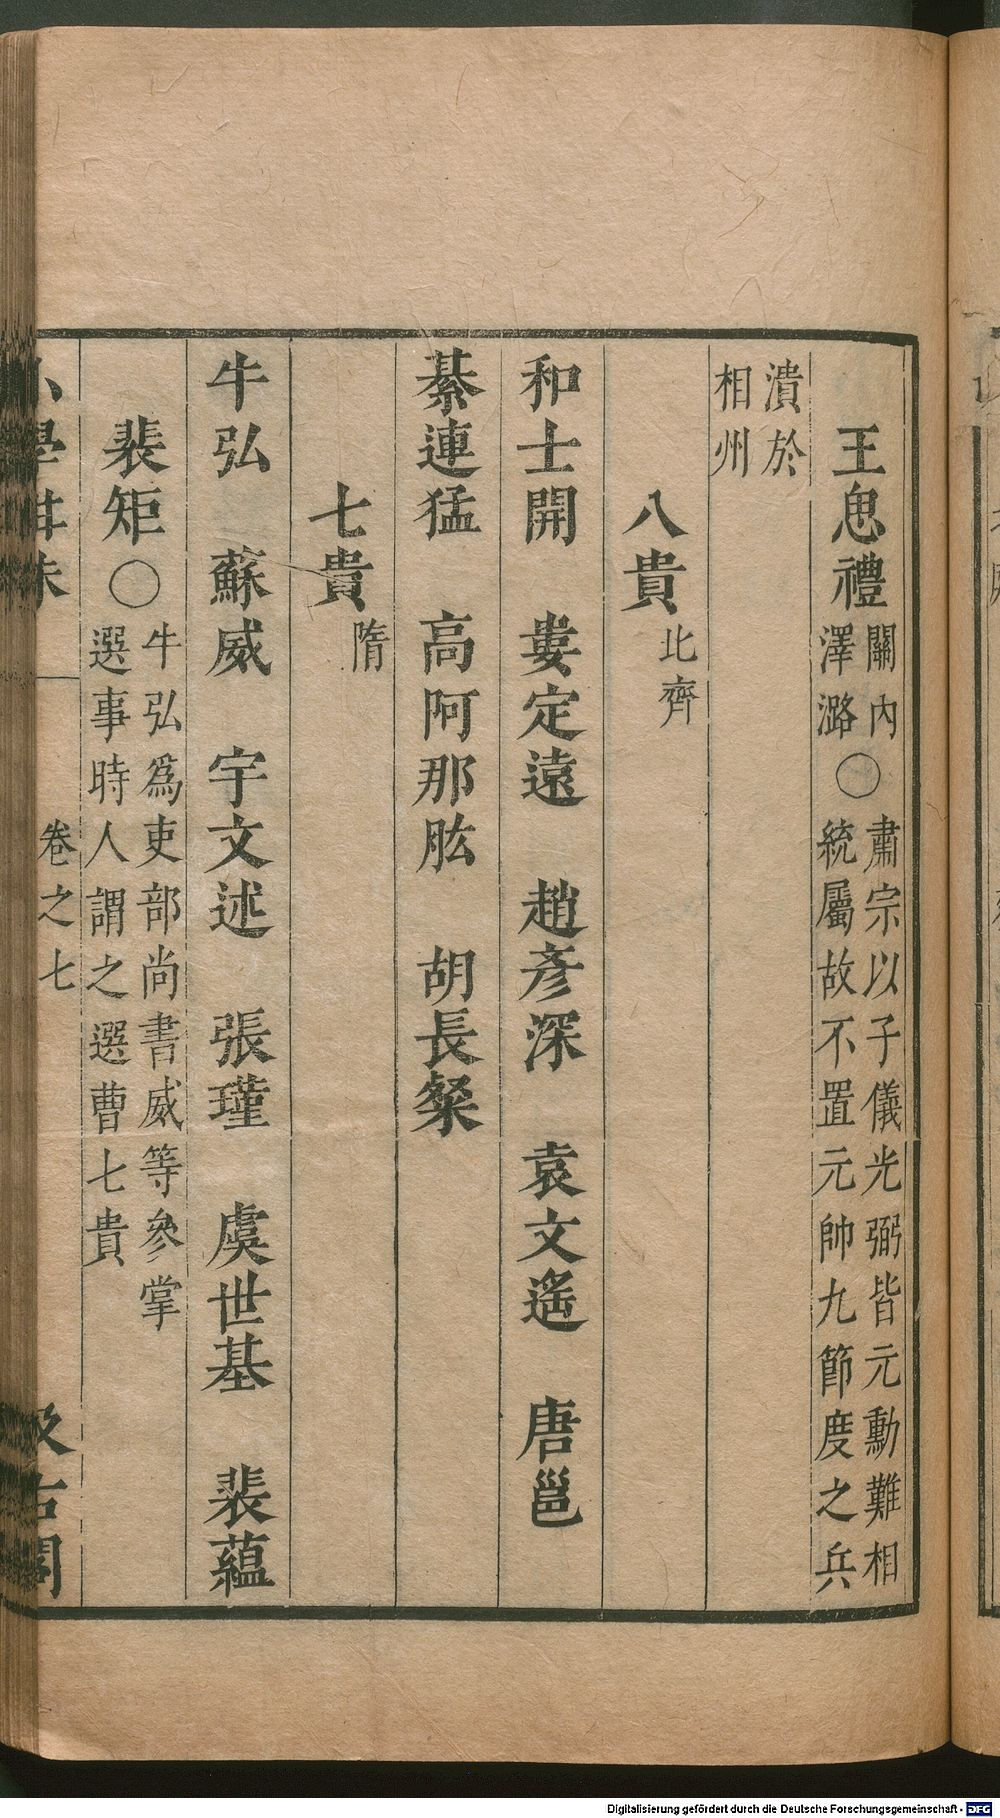 王思禮 關內澤潞 ○ 肅宗以子儀光弼皆元勳難相統屬故不置元帥九節度之兵
潰於相州
八貴 北齊
和士開 婁定遠 趙彥深 袁文遙 唐邕
綦連猛 高阿那肱 胡長粲
七貴 隋
牛弘 蘇威 宇文述 張瑾 虞世基 裴蘊
裴矩 ○ 牛弘爲吏部尚書威等參掌選事時人謂之選曹七貴
小學 卷之七 汲古閣
Digitalisierung gefördert durch die Deutsche Forschungsgemeinschaft - DFG